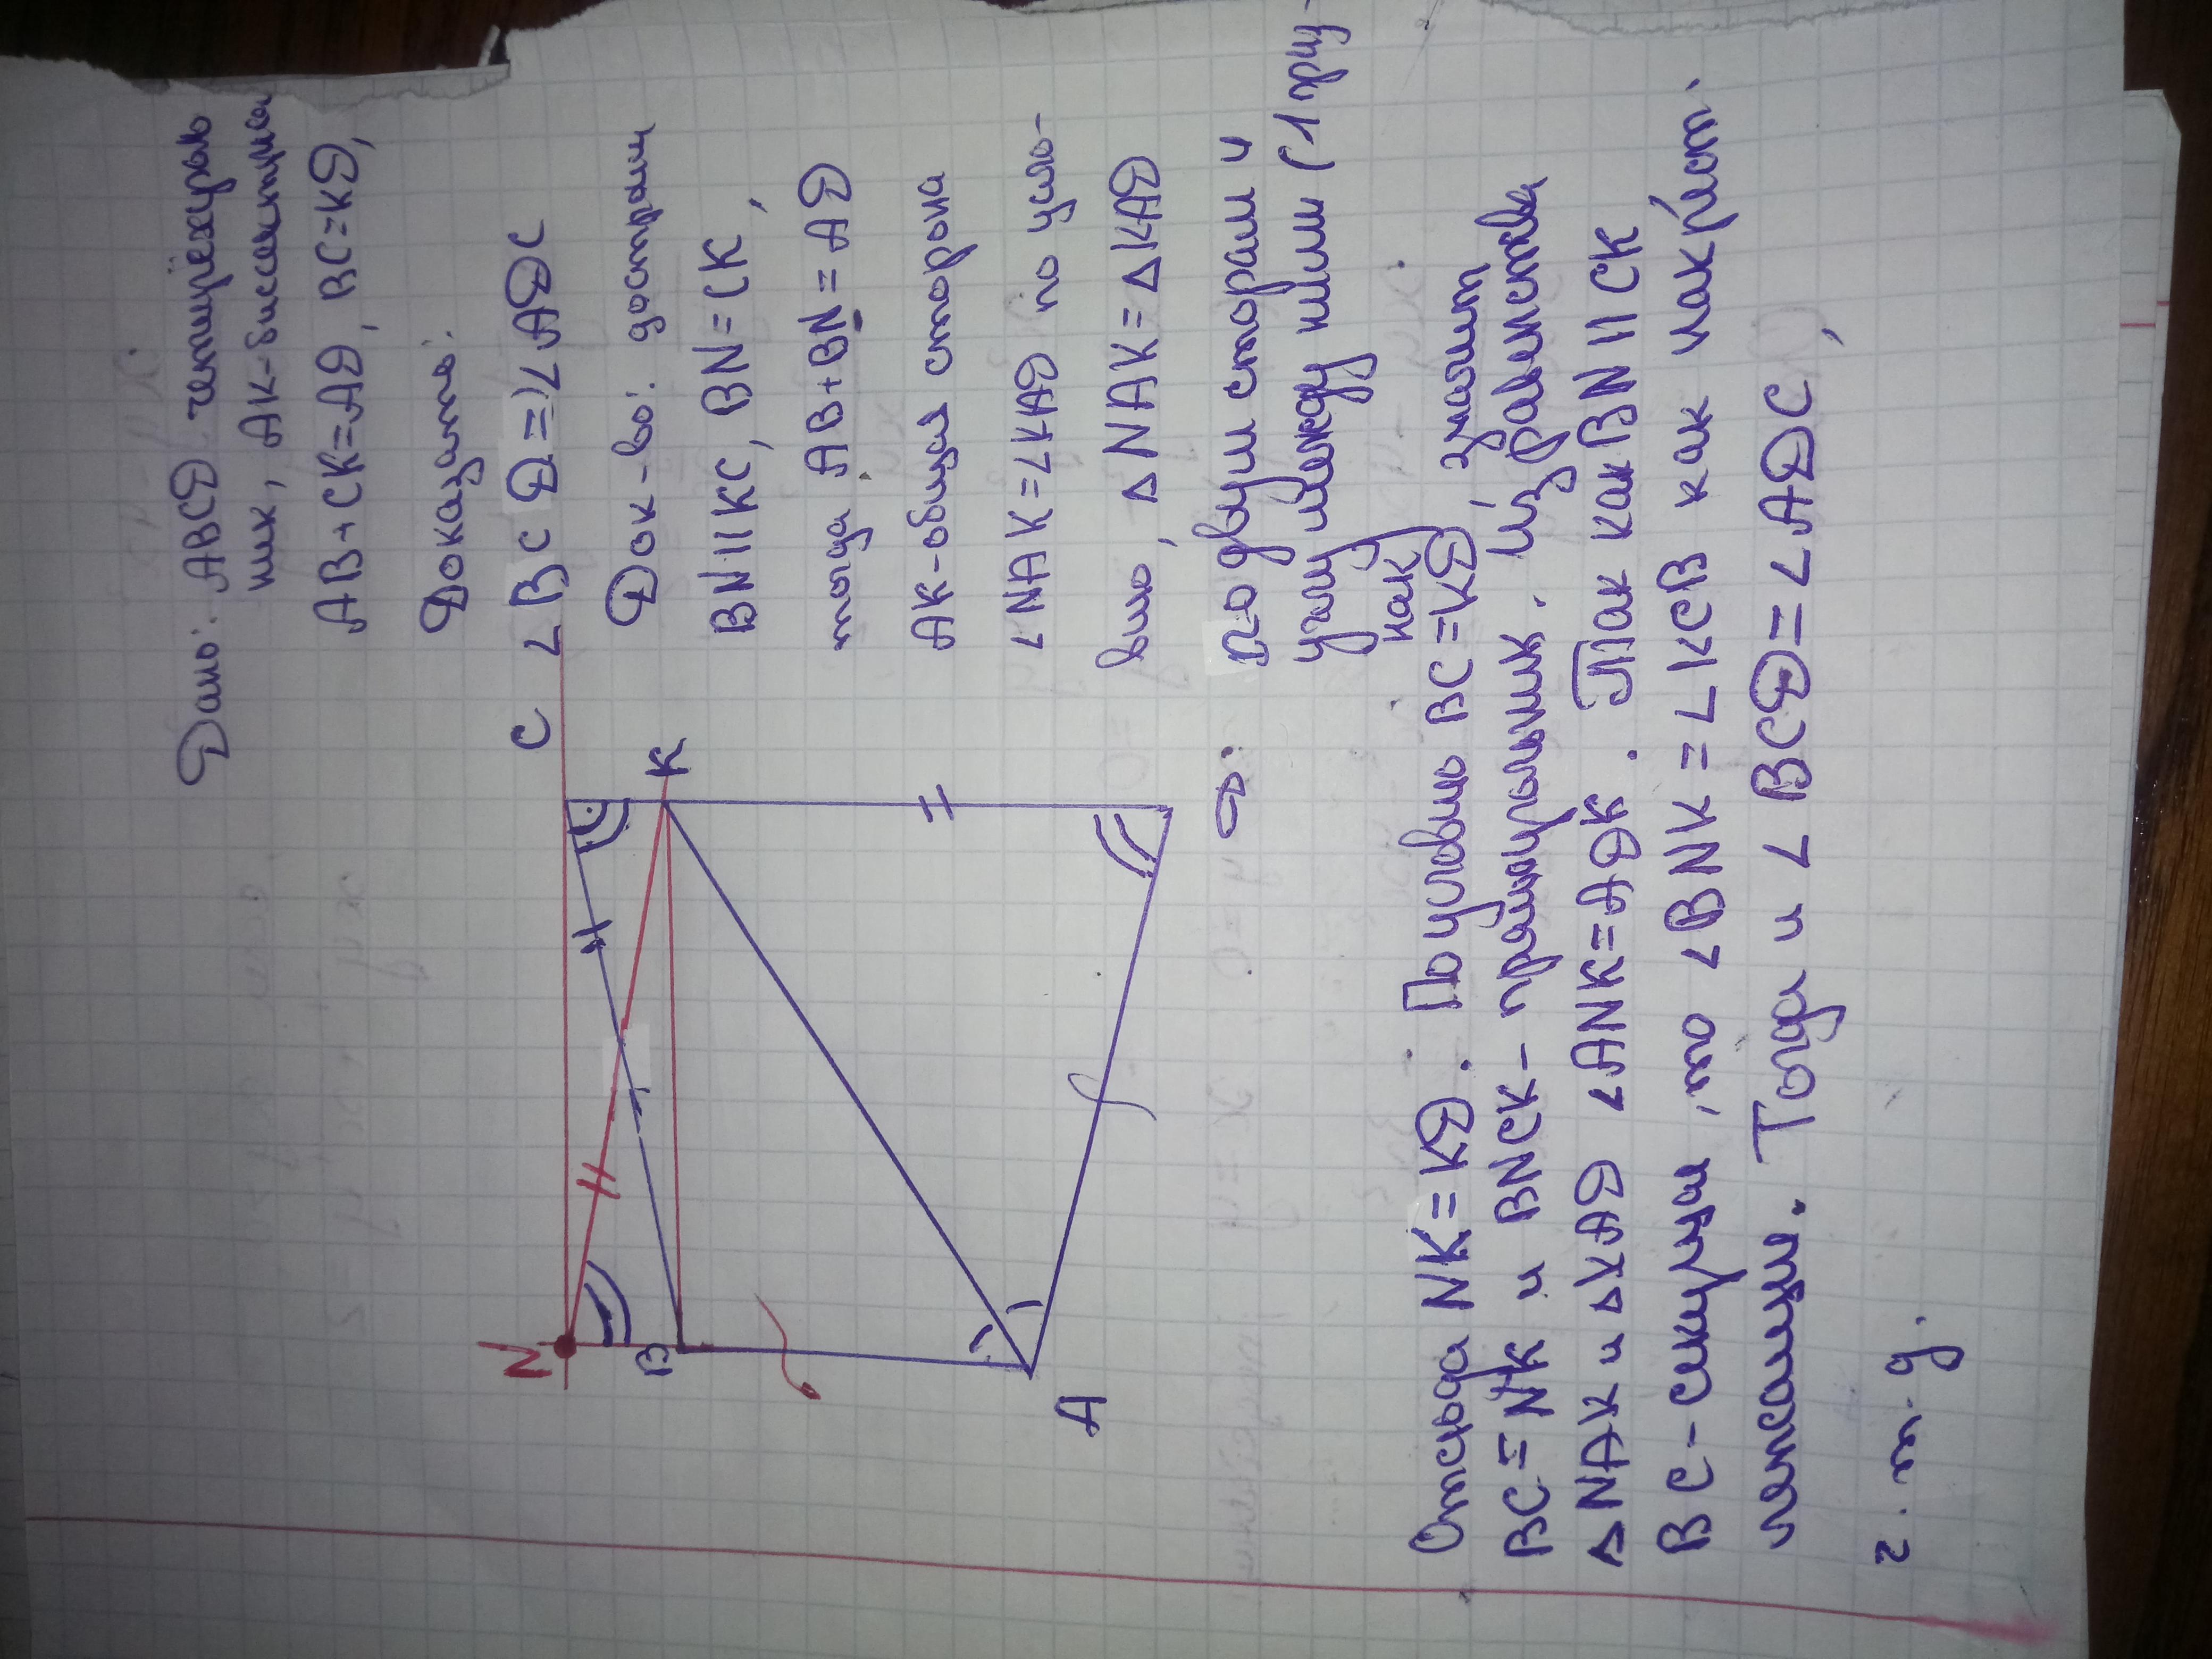 Дано: ABCD четырёхуголь
ник, AK-биссектриса
AB+CK=AD, BC=KD,
Доказать:
∠BCD=∠ADC
Док-во: достроим
BN||KC, BN=CK,
тогда AB+BN=AD
AK-общая сторона
∠NAK=∠KAD по усло-
вию, ΔNAK=ΔKAD
по двум сторам и
углу между ними (1 приз-
нак)
N
C
B
K
A
D.
Отсюда NK=KD. По условию BC=KD, значит
BC=NK и BNCK- прямоугольник. Из равенства
ΔNAK и ΔKAD ∠ANK=ADK. Так как BN||CK
BC-секущая, то ∠BNK=∠KCB как накрест.
лежащие. Тогда и ∠BCD=∠ADC,
ч.т.д.